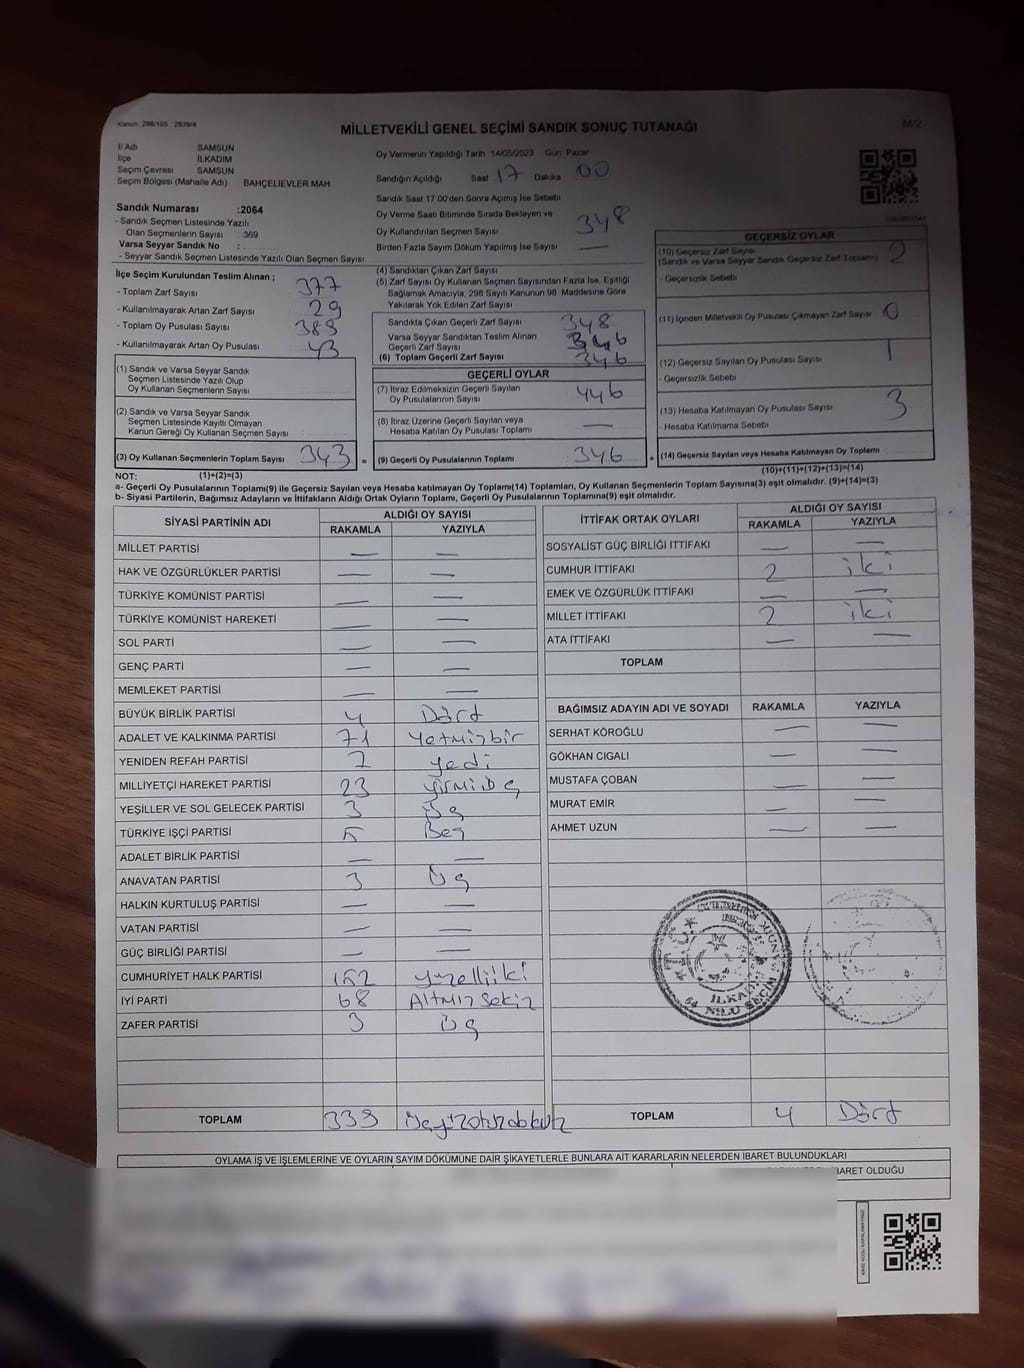 Kanun: 298/105 2839/4
MİLLETVEKİLİ GENEL SEÇİMİ SANDIK SONUÇ TUTANAĞI
M/2
İl Adı SAMSUN
İlçe İLKADIM
Seçim Çevresi SAMSUN
Seçim Bölgesi (Mahalle Adı) BAHÇELİEVLER MAH
Sandık Numarası :2064
- Sandık Seçmen Listesinde Yazılı
Olan Seçmenlerin Sayısı : 369
Varsa Seyyar Sandık No :
- Seyyar Sandık Seçmen Listesinde Yazılı Olan Seçmen Sayısı
Oy Vermenin Yapıldığı Tarih 14/05/2023 Gün Pazar
Sandığın Açıldığı Saat 17 Dakika 00
Sandık Saat 17.00'den Sonra Açılmış İse Sebebi
Oy Verme Saati Bitiminde Sırada Bekleyen ve
Oy Kullandırılan Seçmen Sayısı 348
Birden Fazla Sayım Döküm Yapılmış İse Sayısı —
İlçe Seçim Kurulundan Teslim Alınan ;
- Toplam Zarf Sayısı 377
- Kullanılmayarak Artan Zarf Sayısı 29
- Toplam Oy Pusulası Sayısı 389
- Kullanılmayarak Artan Oy Pusulası 43
(1) Sandık ve Varsa Seyyar Sandık
Seçmen Listesinde Yazılı Olup
Oy Kullanan Seçmenlerin Sayısı
(2) Sandık ve Varsa Seyyar Sandık
Seçmen Listesinde Kayıtlı Olmayan
Kanun Gereği Oy Kullanan Seçmen Sayısı
(3) Oy Kullanan Seçmenlerin Toplam Sayısı 343 =
(4) Sandıktan Çıkan Zarf Sayısı
(5) Zarf Sayısı Oy Kullanan Seçmen Sayısından Fazla İse, Eşitliği
Sağlamak Amacıyla, 298 Sayılı Kanunun 98. Maddesine Göre
Yakılarak Yok Edilen Zarf Sayısı
Sandıkta Çıkan Geçerli Zarf Sayısı 348
Varsa Seyyar Sandıktan Teslim Alınan
Geçerli Zarf Sayısı 346
(6) Toplam Geçerli Zarf Sayısı 346
GEÇERLİ OYLAR
(7) İtiraz Edilmeksizin Geçerli Sayılan
Oy Pusulalarının Sayısı 446
(8) İtiraz Üzerine Geçerli Sayılan veya
Hesaba Katılan Oy Pusulası Toplamı —
(9) Geçerli Oy Pusulalarının Toplamı 346 +
GEÇERSİZ OYLAR
(10) Geçersiz Zarf Sayısı 2
(Sandık ve Varsa Seyyar Sandık Geçersiz Zarf Toplamı)
- Geçersizlik Sebebi
(11) İçinden Milletvekili Oy Pusulası Çıkmayan Zarf Sayısı 0
(12) Geçersiz Sayılan Oy Pusulası Sayısı 1
- Geçersizlik Sebebi
(13) Hesaba Katılmayan Oy Pusulası Sayısı 3
- Hesaba Katılmama Sebebi
(14) Geçersiz Sayılan veya Hesaba Katılmayan Oy Toplamı
(10)+(11)+(12)+(13)=(14)
NOT: (1)+(2)=(3)
a- Geçerli Oy Pusulalarının Toplamı(9) ile Geçersiz Sayılan veya Hesaba Katılmayan Oy Toplamı(14) Toplamları, Oy Kullanan Seçmenlerin Toplam Sayısına(3) eşit olmalıdır. (9)+(14)=(3)
b- Siyasi Partilerin, Bağımsız Adayların ve İttifakların Aldığı Ortak Oyların Toplamı, Geçerli Oy Pusulalarının Toplamına(9) eşit olmalıdır.
SİYASİ PARTİNİN ADI ALDIĞI OY SAYISI
RAKAMLA YAZIYLA
MİLLET PARTİSİ — —
HAK VE ÖZGÜRLÜKLER PARTİSİ — —
TÜRKİYE KOMÜNİST PARTİSİ — —
TÜRKİYE KOMÜNİST HAREKETİ — —
SOL PARTİ — —
GENÇ PARTİ — —
MEMLEKET PARTİSİ — —
BÜYÜK BİRLİK PARTİSİ 4 Dört
ADALET VE KALKINMA PARTİSİ 71 Yetmişbir
YENİDEN REFAH PARTİSİ 7 yedi
MİLLİYETÇİ HAREKET PARTİSİ 23 yirmiüç
YEŞİLLER VE SOL GELECEK PARTİSİ 3 Üç
TÜRKİYE İŞÇİ PARTİSİ 5 Beş
ADALET BİRLİK PARTİSİ — —
ANAVATAN PARTİSİ 3 Üç
HALKIN KURTULUŞ PARTİSİ — —
VATAN PARTİSİ — —
GÜÇ BİRLİĞİ PARTİSİ — —
CUMHURİYET HALK PARTİSİ 152 yüzelliiki
İYİ PARTİ 68 Altmışsekiz
ZAFER PARTİSİ 3 Üç
TOPLAM 339 Üçyüzotuzdokuz
İTTİFAK ORTAK OYLARI ALDIĞI OY SAYISI
RAKAMLA YAZIYLA
SOSYALİST GÜÇ BİRLİĞİ İTTİFAKI — —
CUMHUR İTTİFAKI 2 iki
EMEK VE ÖZGÜRLÜK İTTİFAKI — —
MİLLET İTTİFAKI 2 iki
ATA İTTİFAKI — —
TOPLAM
BAĞIMSIZ ADAYIN ADI VE SOYADI RAKAMLA YAZIYLA
SERHAT KÖROĞLU — —
GÖKHAN CIGALI — —
MUSTAFA ÇOBAN — —
MURAT EMİR — —
AHMET UZUN — —
T.C.
İLKADIM
TOPLAM 4 Dört
OYLAMA İŞ VE İŞLEMLERİNE VE OYLARIN SAYIM DÖKÜMÜNE DAİR ŞİKAYETLERLE BUNLARA AİT KARARLARIN NELERDEN İBARET BULUNDUKLARI
İBARET OLDUĞU